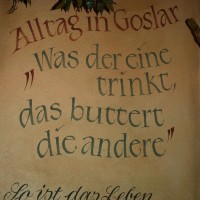 Alltag in Goslar
„Was der eine
trinkt,
das buttert
die andere"
So ist das Leben